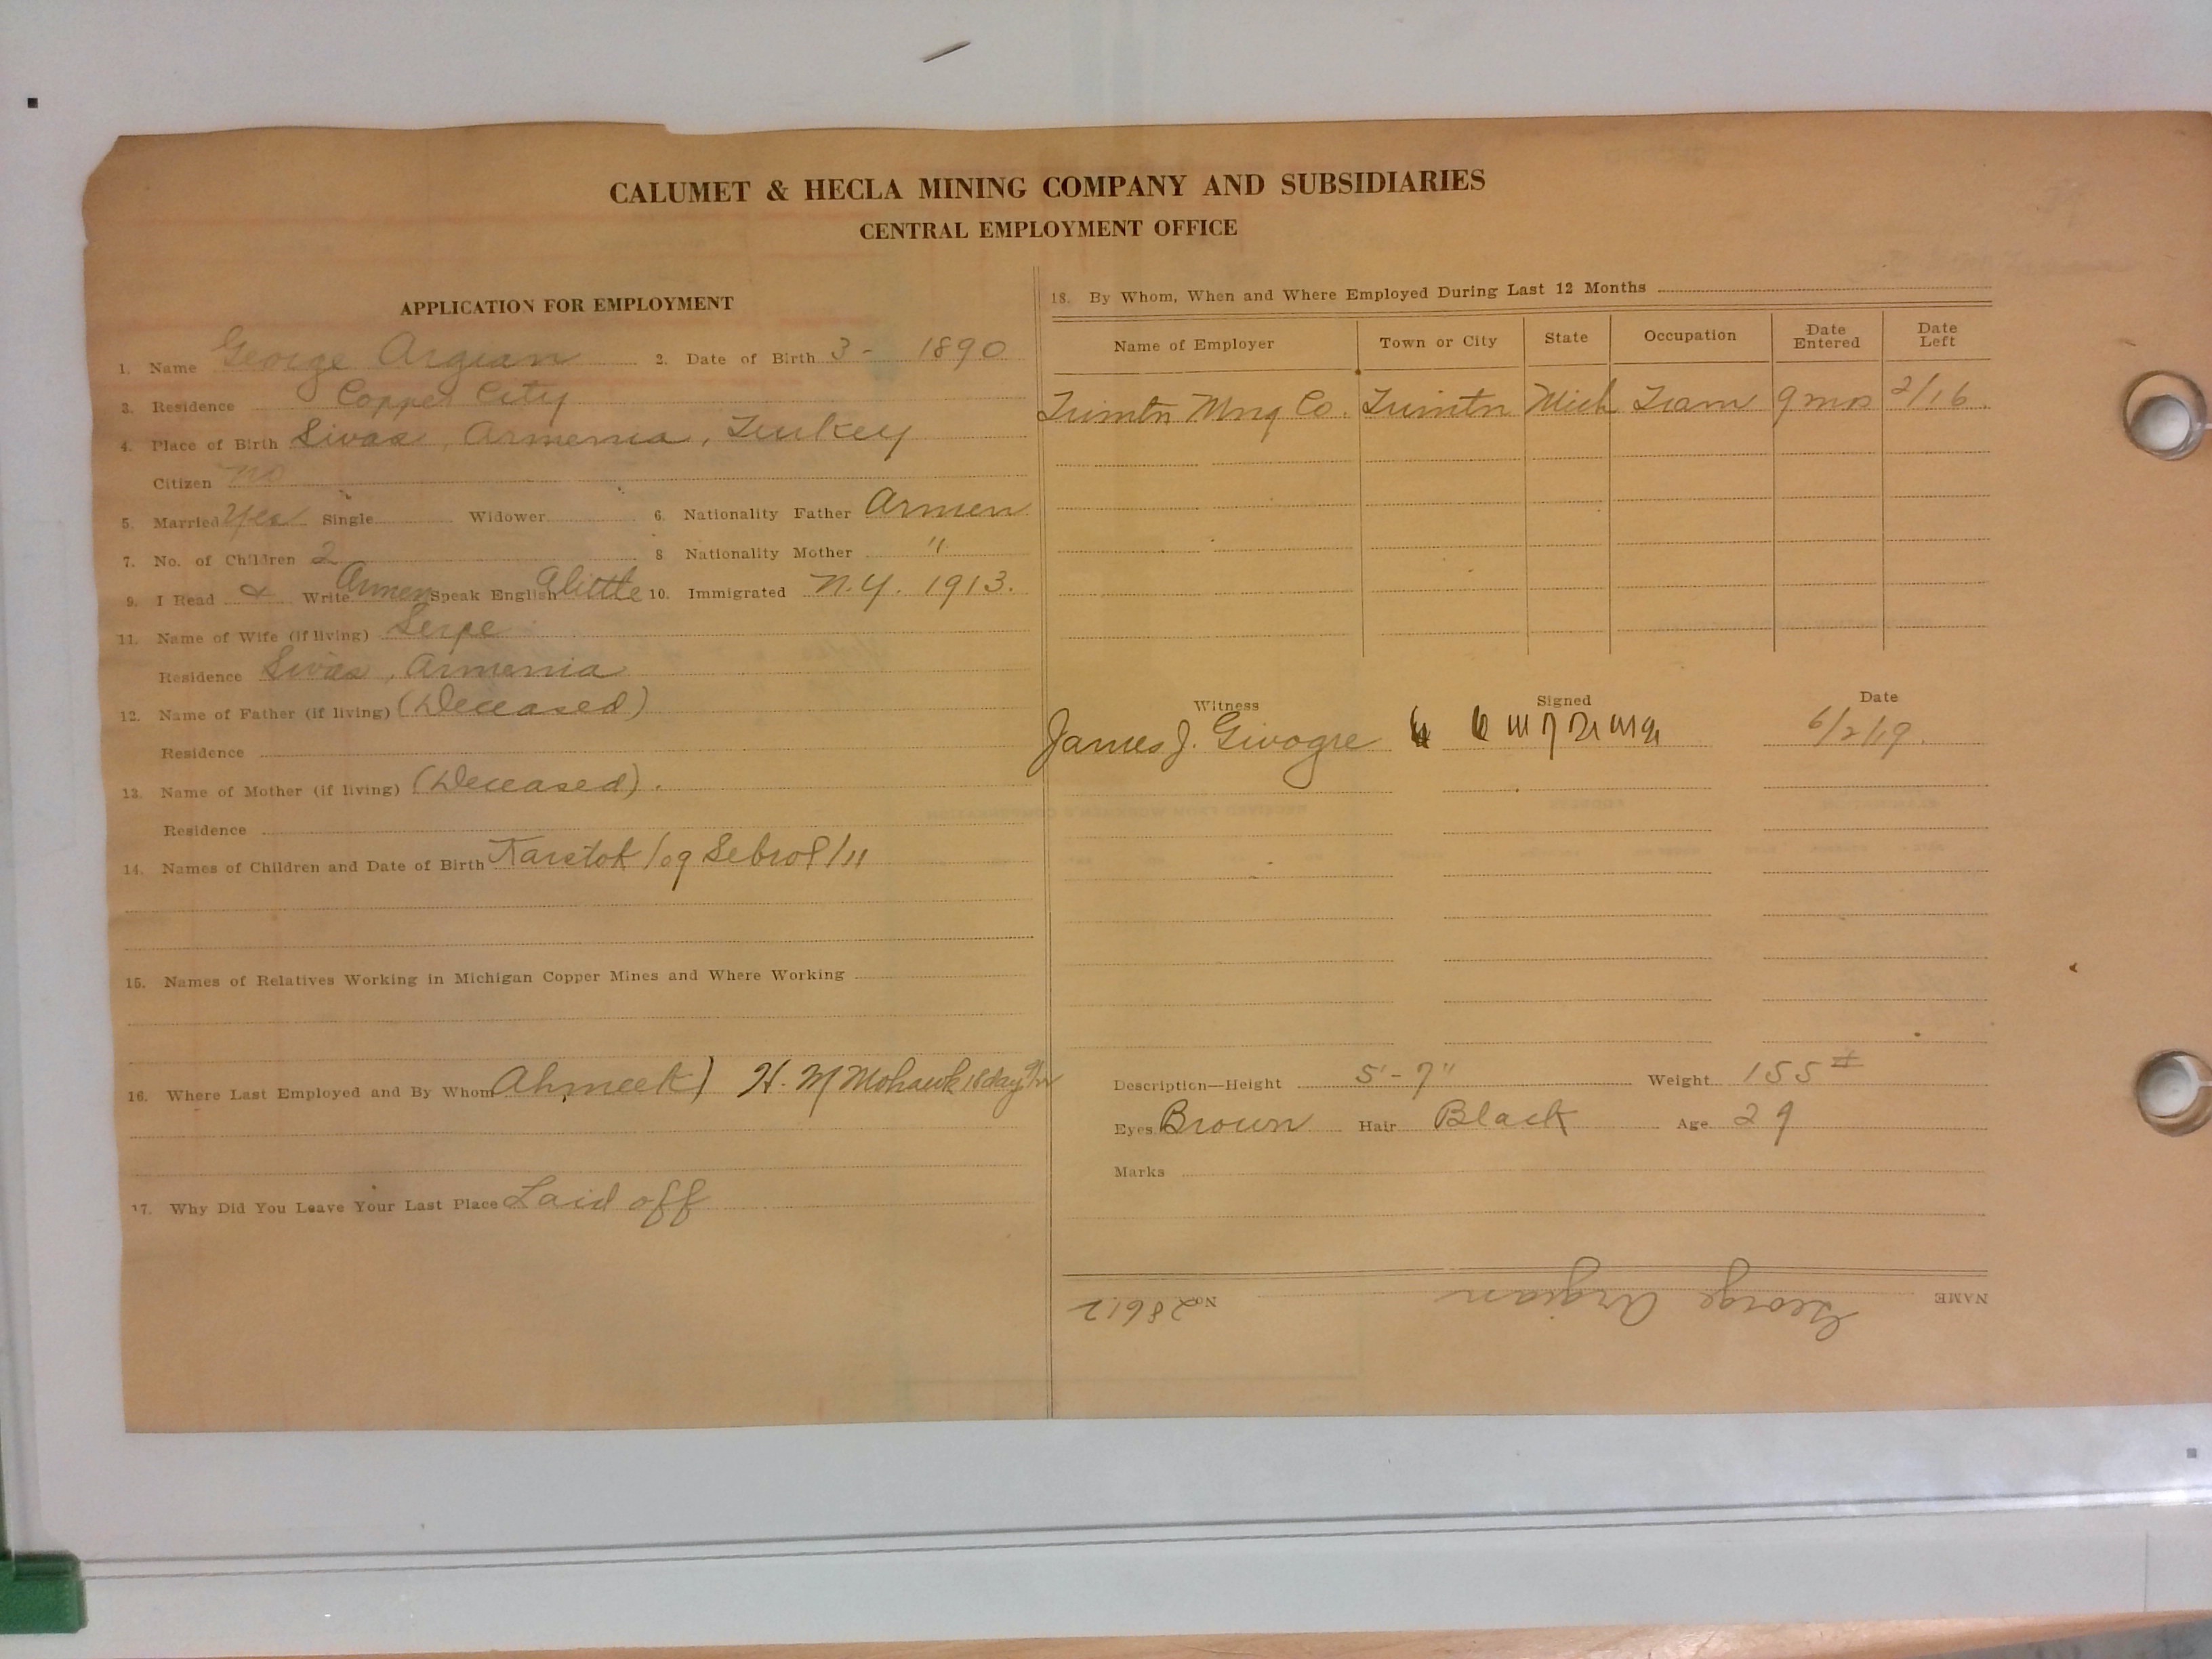 CALUMET & HECLA MINING COMPANY AND SUBSIDIARIES
CENTRAL EMPLOYMENT OFFICE
APPLICATION FOR EMPLOYMENT
1. Name George Argian 2. Date of Birth 3 - 1890
3. Residence Copper City
4. Place of Birth Sivas, Armenia, Turkey
Citizen no
5. Married Yes Single Widower 6. Nationality Father Armen
7. No. of Children 2 8 Nationality Mother "
9. I Read & Write Armen Speak English A little 10. Immigrated N.Y. 1913.
11. Name of Wife (if living) Serpe
Residence Sivas, Armenia
12. Name of Father (if living) (Deceased)
Residence
13. Name of Mother (if living) (Deceased).
Residence
14. Names of Children and Date of Birth Karstok /09 Sebrof /11
15. Names of Relatives Working in Michigan Copper Mines and Where Working
16. Where Last Employed and By Whom Ahmeek) H. M Mohawk 18 day
17. Why Did You Leave Your Last Place Laid off
18. By Whom, When and Where Employed During Last 12 Months
Name of Employer Town or City State Occupation Date Entered Date Left
Trimtn Mng Co. Trimtn Mich Tram 9 mos 2/16.
Witness Signed Date
James J. Givogre 6/2/19.
Description—Height 5'-7" Weight 155#
Eyes Brown Hair Black Age 29
Marks
NAME George Argian No. 28612